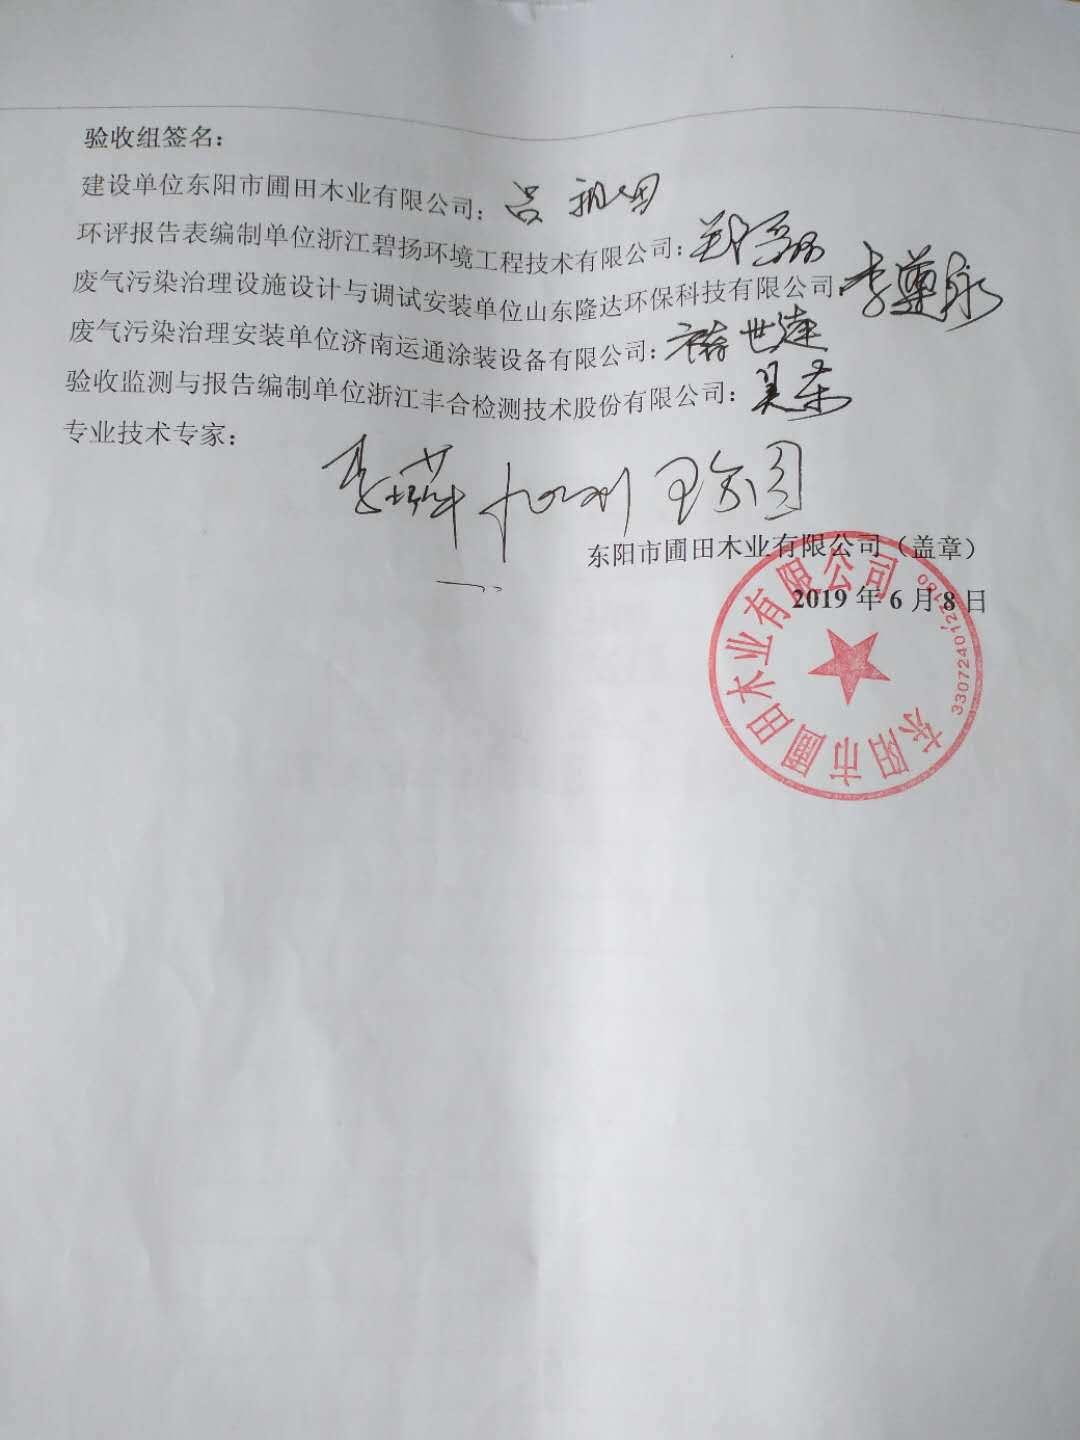 验收组签名：
建设单位东阳市圃田木业有限公司：吕
环评报告表编制单位浙江碧扬环境工程技术有限公司：
废气污染治理设施设计与调试安装单位山东隆达环保科技有限公司：李尊永
废气污染治理安装单位济南运通涂装设备有限公司：世建
验收监测与报告编制单位浙江丰合检测技术股份有限公司：吴荣
专业技术专家：
李
东阳市圃田木业有限公司（盖章）
2019 年 6 月 8 日
东阳市圃田木业有限公司